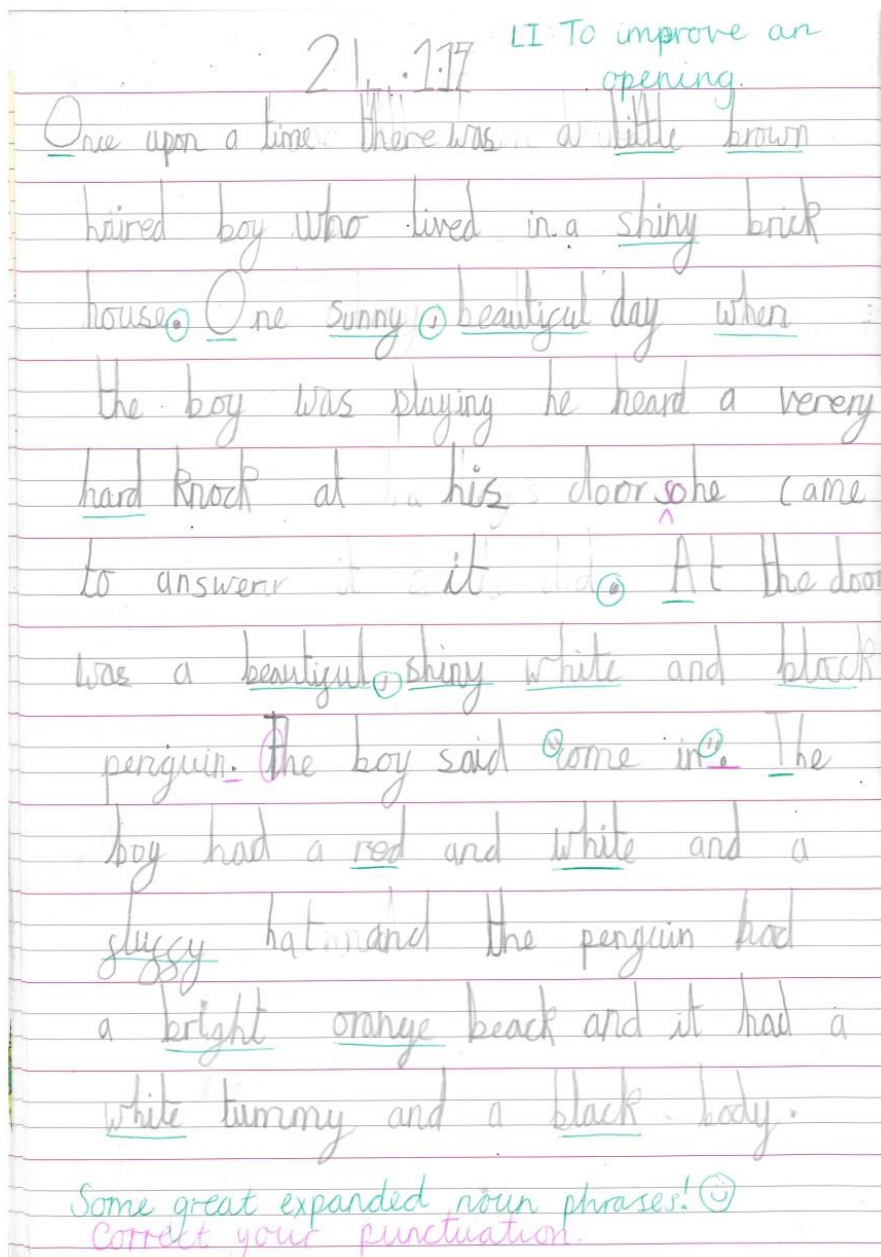 21.1.17 LI: To improve an
opening.
Once upon a time there was a little brown
haired boy who lived in a shiny brick
house. One sunny, beautiful day when
the boy was playing he heard a verery
hard knock at his door so he came
to answer it. At the door
was a beautiful, shiny white and black
penguin. The boy said "come in". The
boy had a red and white and a
fluffy hat and the penguin had
a bright orange beack and it had a
white tummy and a black body.
Some great expanded noun phrases!
Correct your punctuation.